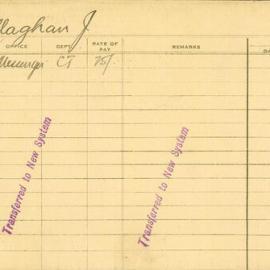 llaghan J
OFFICE DEPT. RATE OF PAY REMARKS
Messenger CT 25/-
Transferred to New System
Transferred to New System